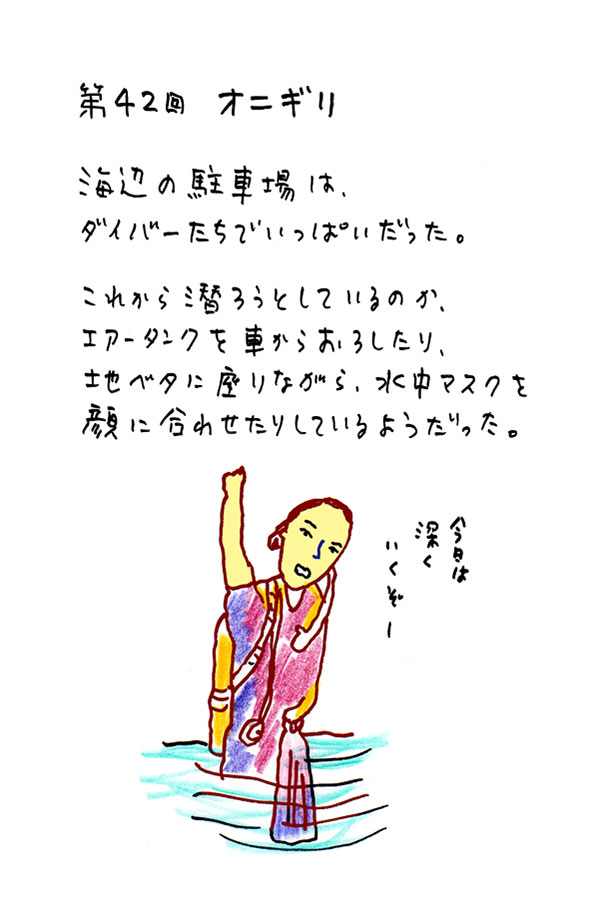 第42回 オニギリ
海辺の駐車場は、
ダイバーたちでいっぱいだった。
これから潜ろうとしているのか、
エアータンクを車からおろしたり、
地ベタに座りながら、水中マスクを
顔に合わせたりしているようだった。
今日は
深く
いくぞー